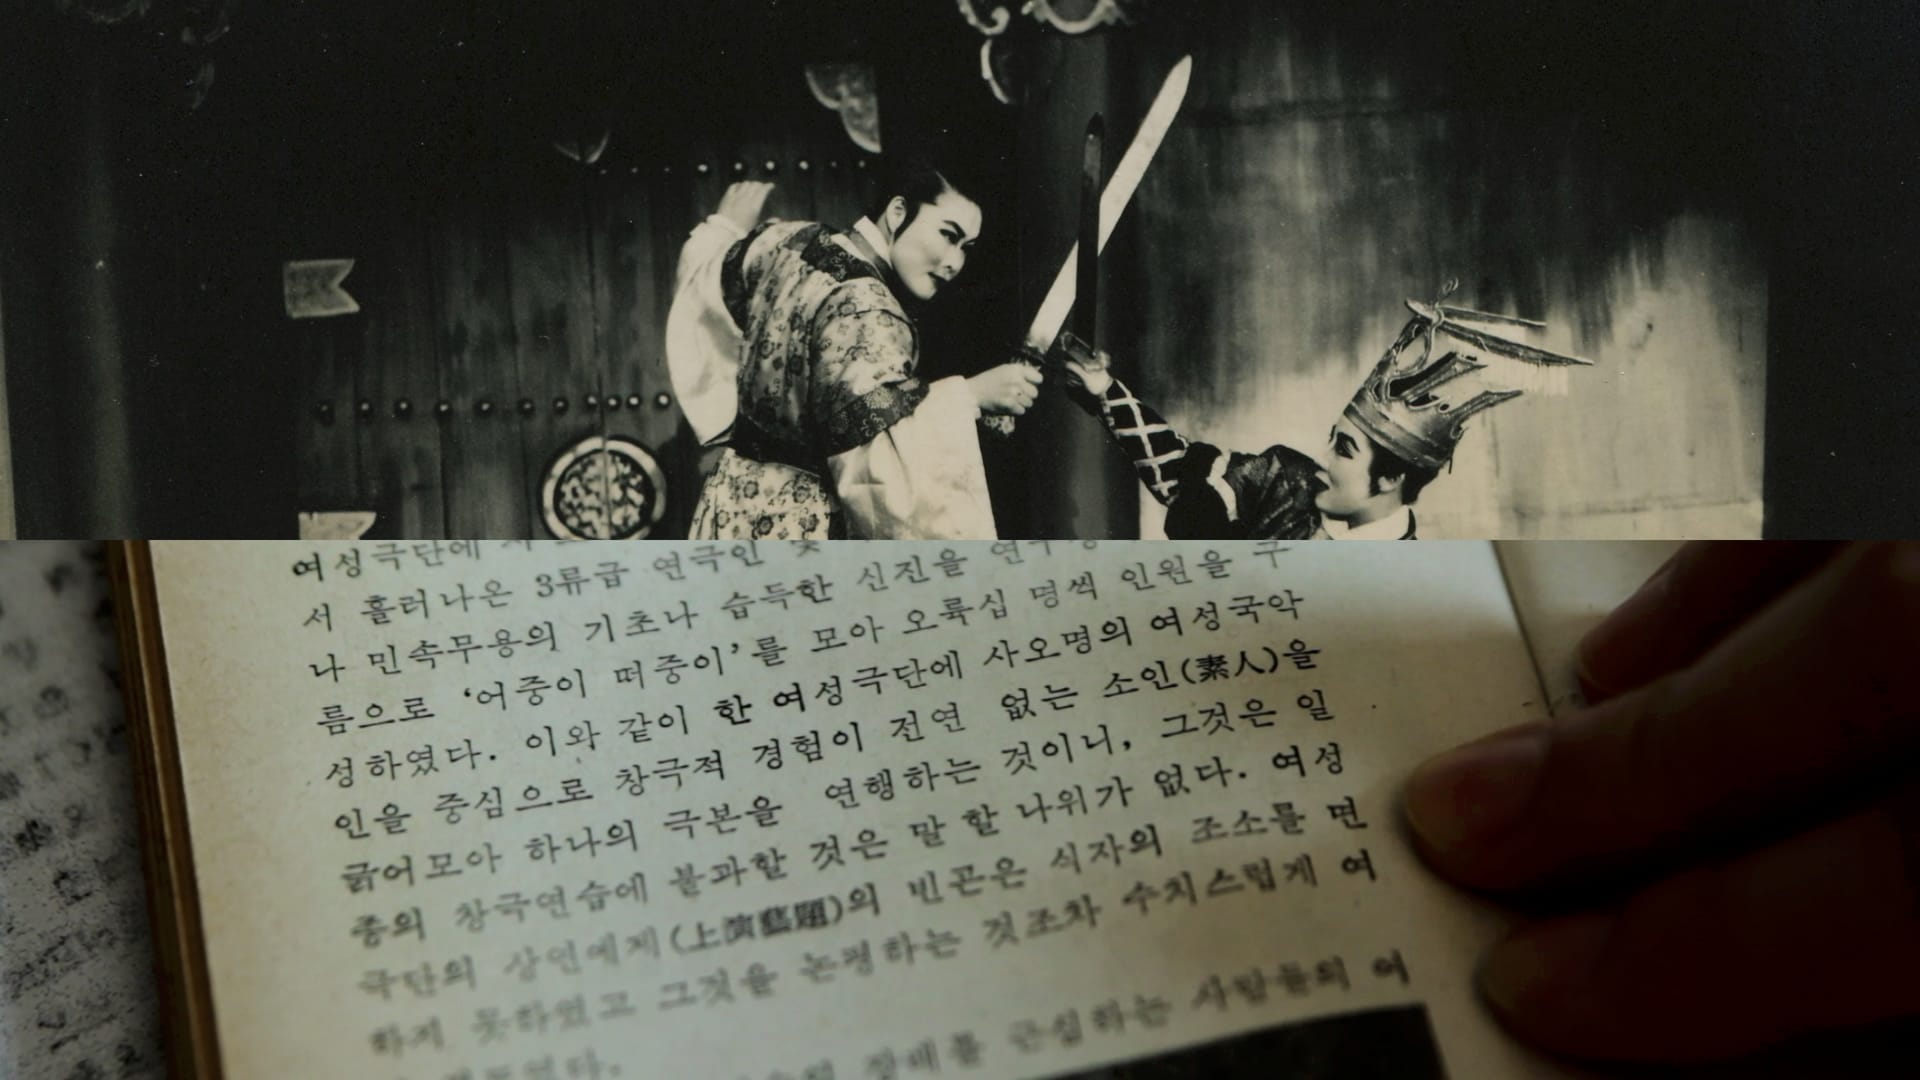 여성극단에
서 흘러나온 3류급 연극인 및
나 민속무용의 기초나 습득한 신진을
름으로 ‘어중이 떠중이’를 모아 오륙십 명씩 인원을 구
성하였다. 이와 같이 한 여성극단에 사오명의 여성국악
인을 중심으로 창극적 경험이 전연 없는 소인(素人)을
긁어모아 하나의 극본을 연행하는 것이니, 그것은 일
종의 창극연습에 불과할 것은 말 할 나위가 없다. 여성
극단의 상연예제(上演藝題)의 빈곤은 식자의 조소를 면
하지 못하였고 그것을 논평하는 것조차 수치스럽게 여
정배를 근심하는 사람들의 어